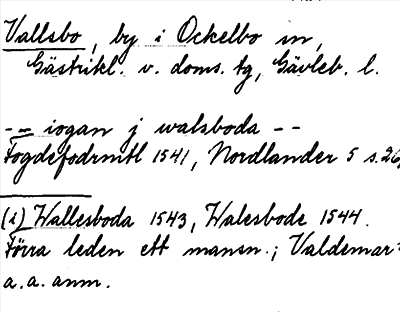 Vallsbo, by i Ockelbo sn,
Gästrikl. v. doms. tg, Gävleb. l.
-- iogan j walsboda --
Fogdefodrmtl 1541, Nordlander 5 s. 26,
(i) Wallesboda 1543, Walesbode 1544.
Förra leden ett mansn.; Valdemar-
a.a. anm.